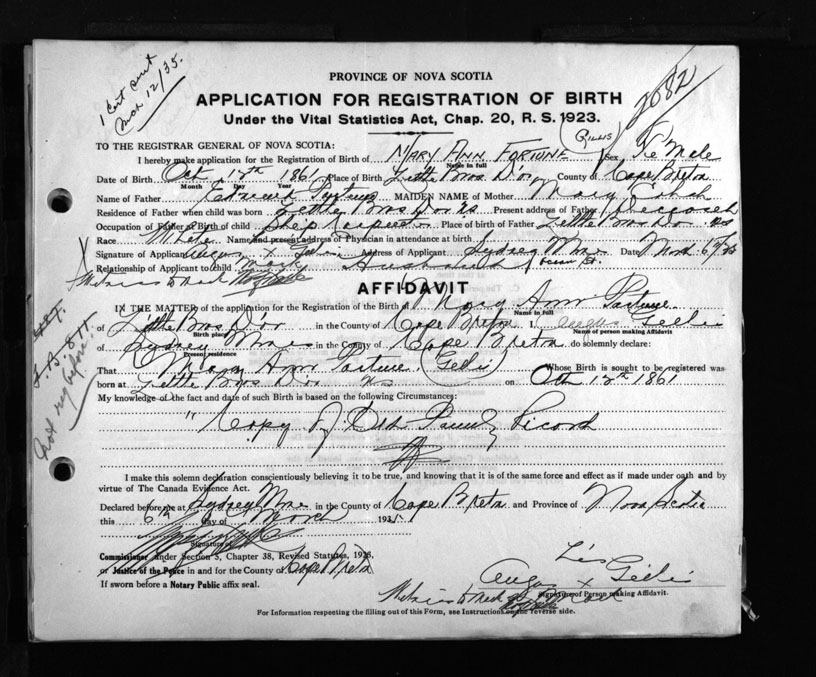 1 Cert sent
Mar 12/35.
2082
PROVINCE OF NOVA SCOTIA
APPLICATION FOR REGISTRATION OF BIRTH
Under the Vital Statistics Act, Chap. 20, R. S. 1923.
(GILLIS)
TO THE REGISTRAR GENERAL OF NOVA SCOTIA:
I hereby make application for the Registration of Birth of MARY ANN FORTUNE Sex Fe Male
Name in full
Date of Birth Oct 12th 1861 Place of Birth Little Bras Dor County of Cape Breton
Month Day Year
Name of Father MAIDEN NAME of Mother Mary
Residence of Father when child was born Little Bras Dor NS Present address of Father Deceased
Occupation of Father at Birth of child Place of birth of Father Little Bras Dor NS
Race White Name and present address of Physician in attendance at birth
Signature of Applicant Angus x Gillis Sydney Mines Date March 6th/35
Relationship of Applicant to child Husband
mark
Witness to mark
AFFIDAVIT
IN THE MATTER of the application for the Registration of the Birth of Mary Ann Fortune
Name in full
of Little Bras Dor in the County of Cape Breton I, Angus Gillis
Birth place Name of person making Affidavit
of Sydney Mines in the County of Cape Breton do solemnly declare:
Present residence
That Mary Ann Fortune (Gillis) Whose Birth is sought to be registered was
born at Little Bras Dor NS on Oct 12th 1861
My knowledge of the fact and date of such Birth is based on the following Circumstances:
" Copy of Old Family Record
I make this solemn declaration conscientiously believing it to be true, and knowing that it is of the same force and effect as if made under oath and by
virtue of The Canada Evidence Act.
Declared before me at Sydney Mines in the County of Cape Breton and Province of Nova Scotia
this 6th day of March 193
Signature of
Commissioner under Section 5, Chapter 38, Revised Statutes,
or Justice of the Peace in and for the County of Cape Breton
If sworn before a Notary Public affix seal.
His
Angus x Gillis
Signature of Person making Affidavit.
Witness to mark
For Information respecting the filling out of this Form, see Instructions on the reverse side.
Not reg before.